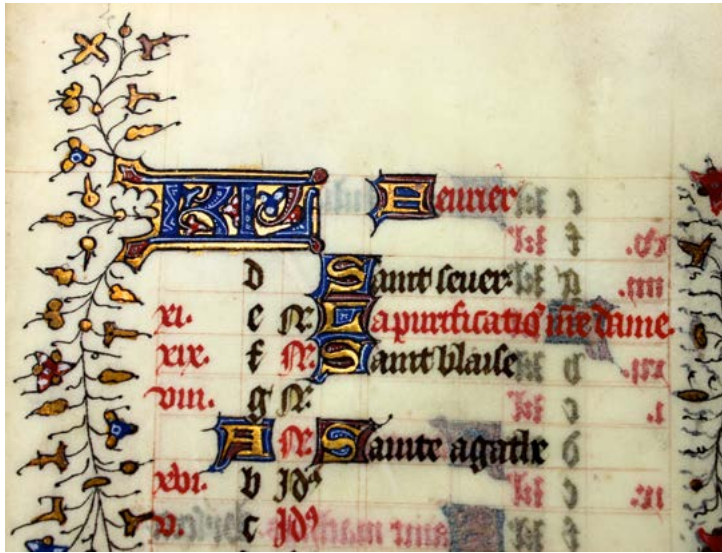 KL Feurier
d Saint seuer.
xi. e N. La purificatio nre dame.
xix. f N. Saint blaise
viii. g N.
A N. Sainte agathe
xvi. b Id9
v. c Id9